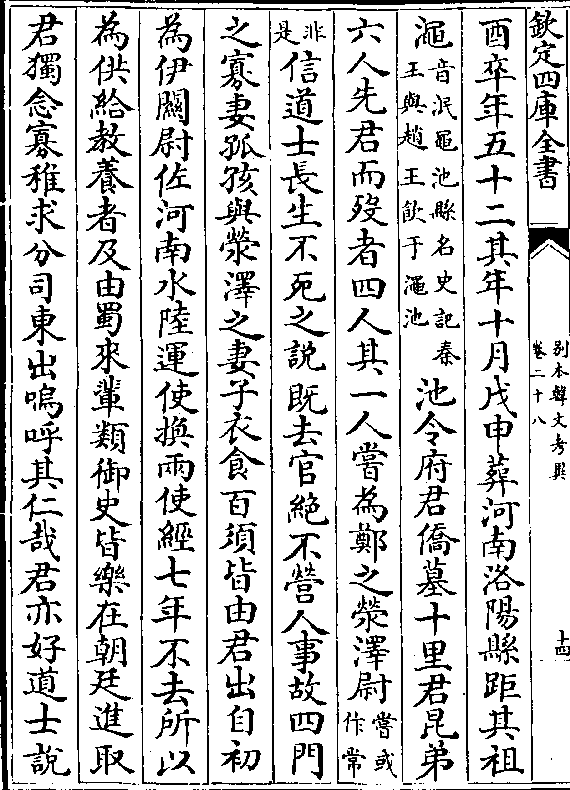 欽定四庫全書
別本韓文考異
卷二十八
十四
酉卒年五十二其年十月戊申葬河南洛陽縣距其祖
澠音泯黽池縣名史記秦王與趙王飲于澠池池令府君僑墓十里君昆弟
六人先君而歿者四人其一人嘗為鄭之滎澤尉嘗或作常
非是信道士長生不死之說既去官絶不營人事故四門
之寡妻孤孩與滎澤之妻子衣食百須皆由君出自初
為伊闕尉佐河南水陸運使換兩使經七年不去所以
為供給教養者及由蜀來輩類御史皆樂在朝廷進取
君獨念寡稚求分司東出嗚呼其仁哉君亦好道士說